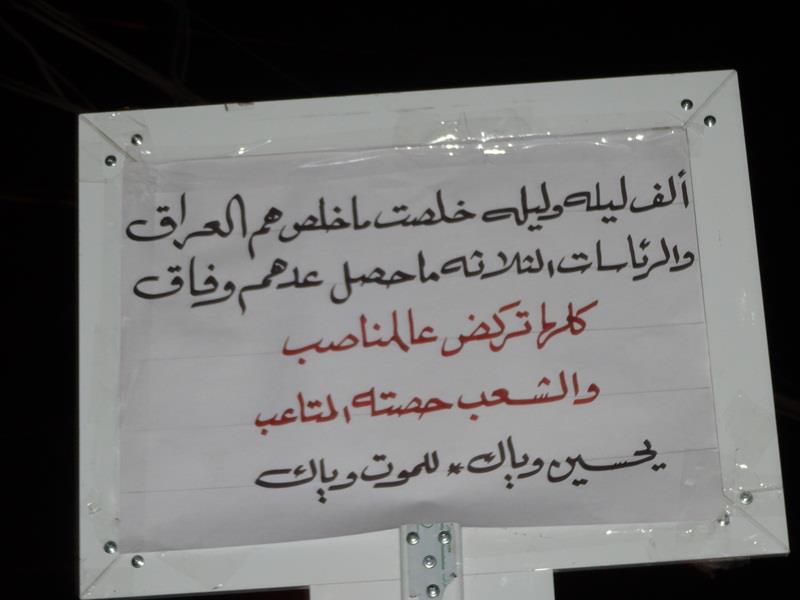 ألف ليله وليله خلصت ماخلص هم العراق
والرئاسات الثلاثه ماحصل عدهم وفاق
كلها تركض عالمناصب
والشعب حصته المتاعب
يحسين وياك * للموت وياك